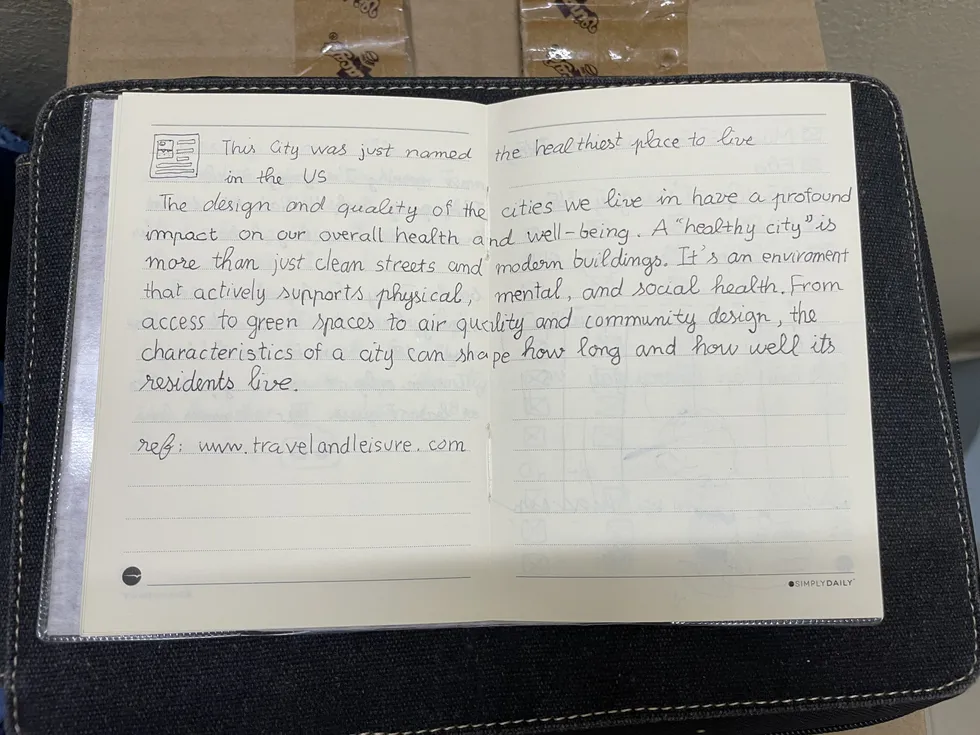 This City was just named the healthiest place to live
in the US
The design and quality of the cities we live in have a profound
impact on our overall health and well-being. A "healthy city" is
more than just clean streets and modern buildings. It's an enviroment
that actively supports physical, mental, and social health. From
access to green spaces to air quality and community design, the
characteristics of a city can shape how long and how well its
residents live.
ref: www.travelandleisure.com
SIMPLYDAILY